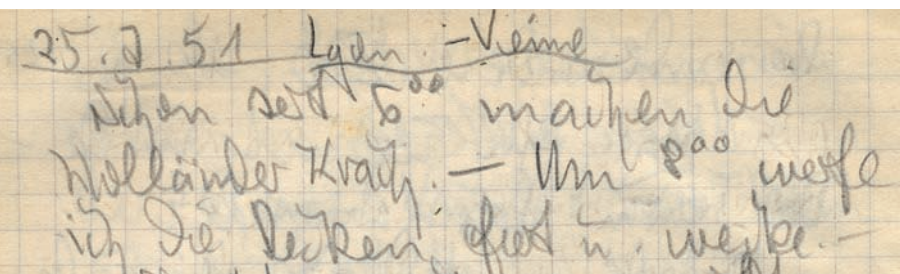 25.7.51 Lyon.-Vienne
Schon seit 6⁰⁰ machen die
Holländer Krach. – Um 8⁰⁰ werfe
ich die Decken fort u. wecke. –